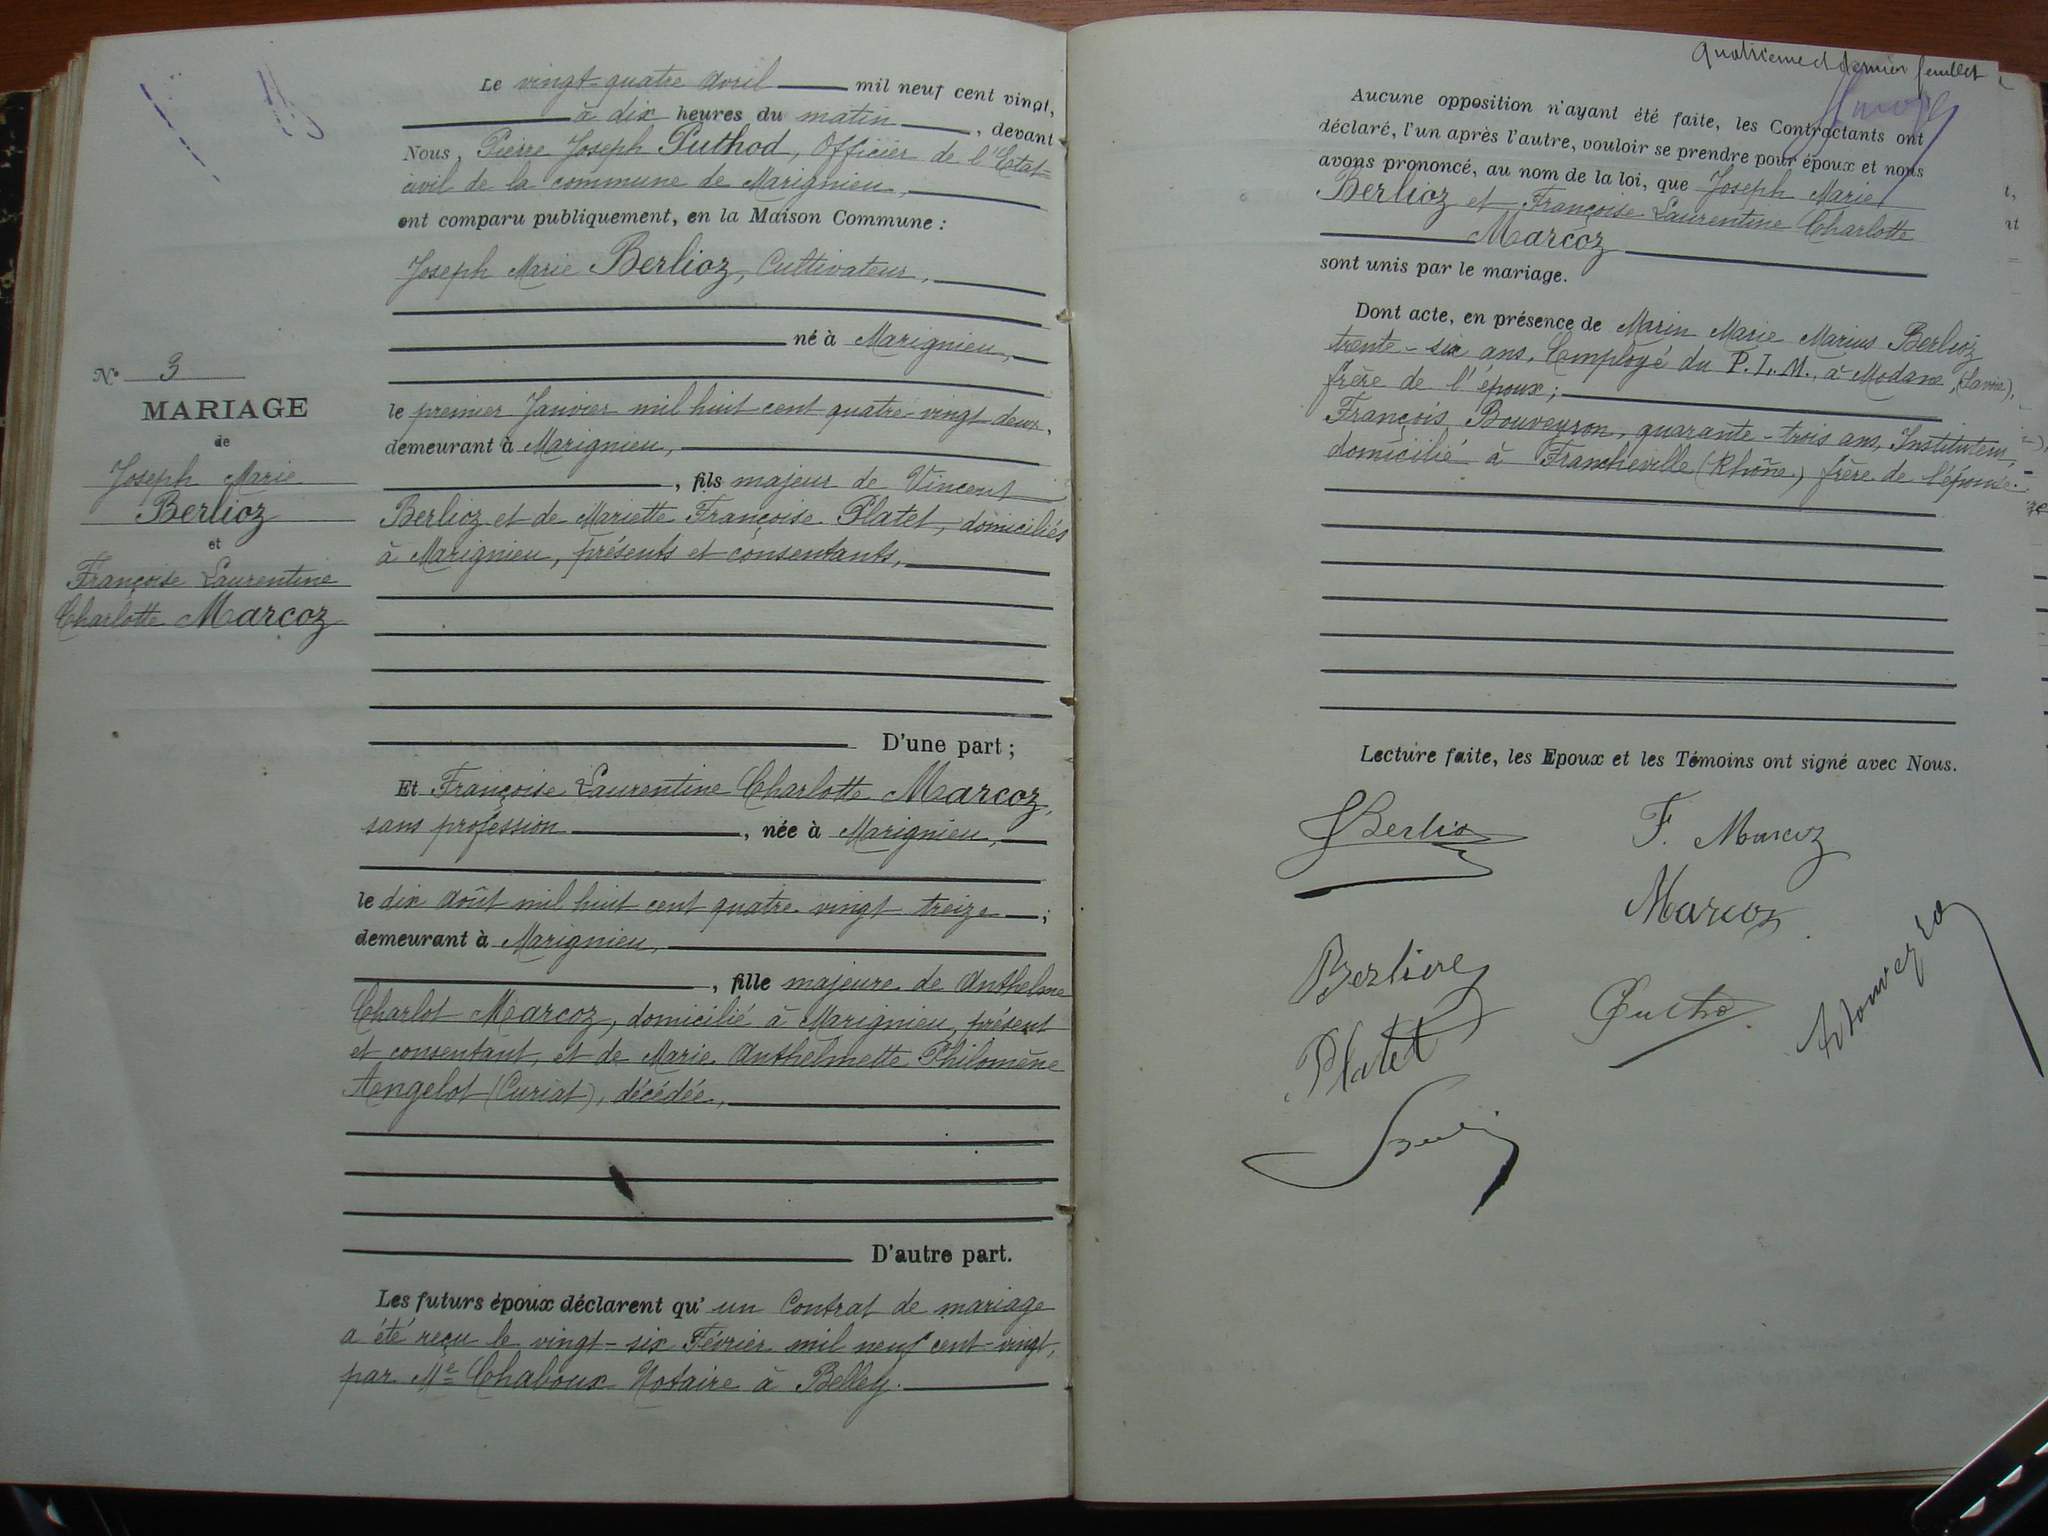 Le vingt-quatre Avril mil neuf cent vingt,
à dix heures du matin, devant
Nous, Pierre Joseph Puthod, Officier de l'Etat-
civil de la commune de Marignieu,
ont comparu publiquement, en la Maison Commune :
Joseph Marie Berlioz, Cultivateur,
né à Marignieu,
le premier Janvier mil huit cent quatre-vingt deux,
demeurant à Marignieu,
, fils majeur de Vincent
Berlioz et de Mariette Françoise Platet, domiciliés
à Marignieu, présents et consentants,
D'une part ;
Et Françoise Laurentine Charlotte Marcoz,
sans profession, née à Marignieu,
le dix Août mil huit cent quatre-vingt treize ;
demeurant à Marignieu,
, fille majeure de Anthelme
Charlot Marcoz, domicilié à Marignieu, présent
et consentant, et de Marie Anthelmette Philomène
Angelot (Curiat), décédée,
D'autre part.
Les futurs époux déclarent qu'un Contrat de mariage
a été reçu le vingt-six Février mil neuf cent-vingt,
par Me Chaboux Notaire à Belley.
N° 3
MARIAGE
de
Joseph Marie
Berlioz
et
Françoise Laurentine
Charlotte Marcoz
Quatrième et dernier feuillet
Aucune opposition n'ayant été faite, les Contractants ont
déclaré, l'un après l'autre, vouloir se prendre pour époux et nous
avons prononcé, au nom de la loi, que Joseph Marie
Berlioz et Françoise Laurentine Charlotte
Marcoz
sont unis par le mariage.
Dont acte, en présence de Marin Marie Marius Berlioz
trente-six ans, Employé du P.L.M., à Modane, (Savoie),
frère de l'époux ;
François Bouveyron, quarante-trois ans, Instituteur,
domicilié à Francheville (Rhône) frère de l'épouse.
Lecture faite, les Epoux et les Témoins ont signé avec Nous.
Berlioz
F. Marcoz
Marcoz
Platet